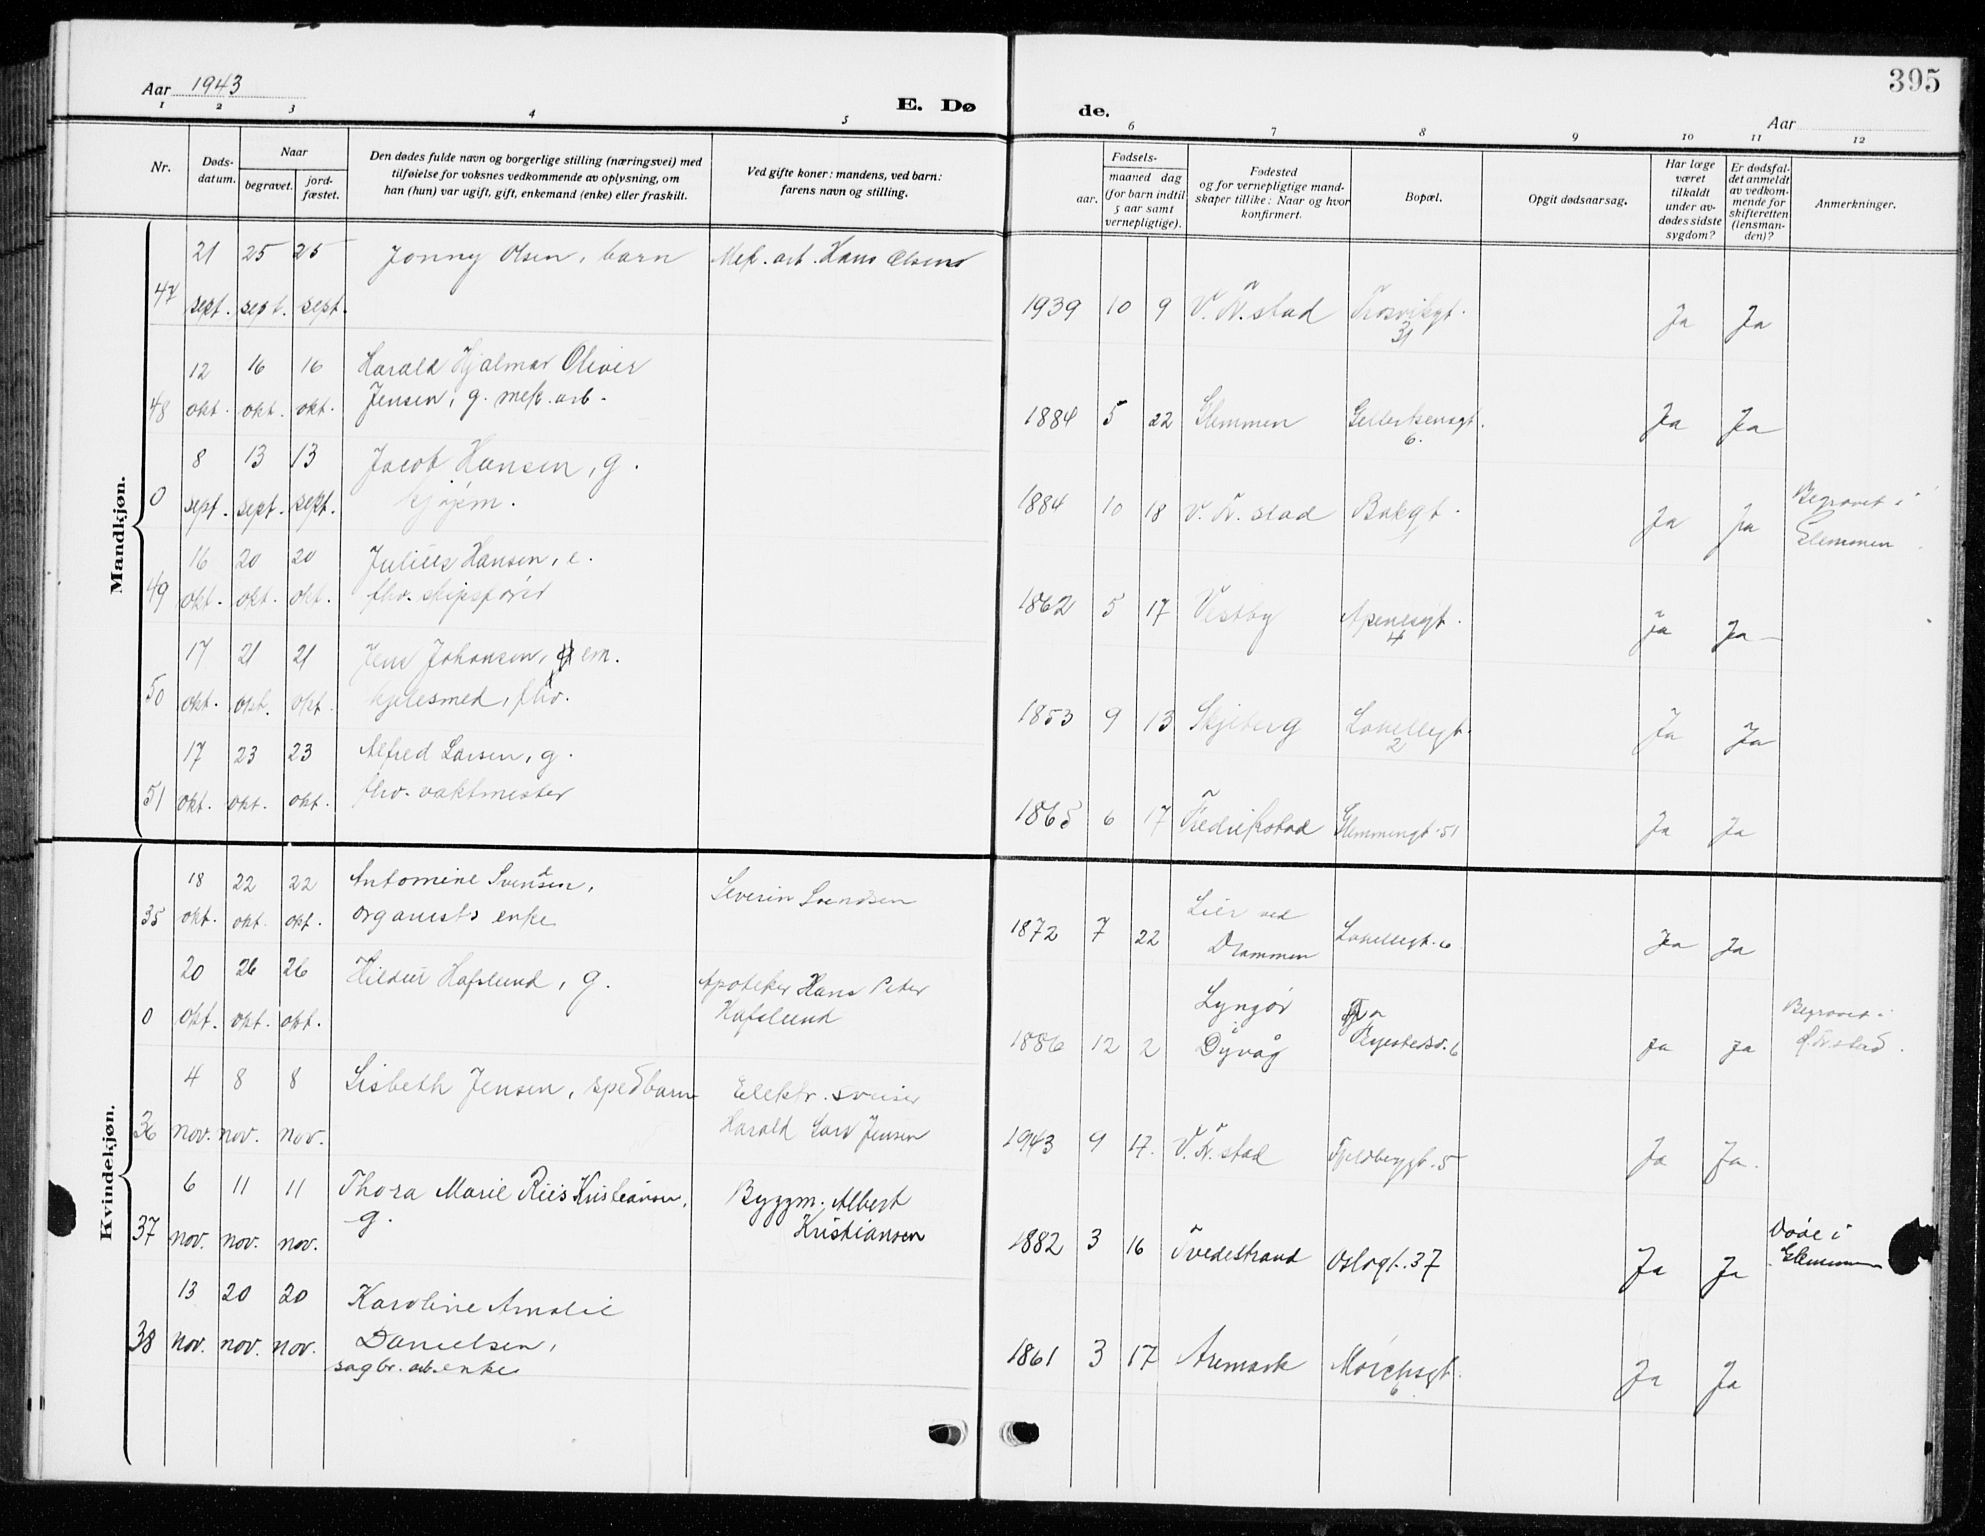 Aar 1943
E. Dø de.
Aar
395
1 2 3 4 5 6 7 8 9 10 11 12
Nr.
Døds-
datum.
Naar
begravet.
jord-
fæstet.
Den dødes fulde navn og borgerlige stilling (næringsvei) med
tilføielse for voksnes vedkommende av oplysning, om
han (hun) var ugift, gift, enkemand (enke) eller fraskilt.
Ved gifte koner: mandens, ved barn:
farens navn og stilling.
Fødsels-
aar.
maaned dag
(for barn indtil
5 aar samt
vernepligtige).
Fødested
og for vernepligtige mand-
skaper tillike: Naar og hvor
konfirmert.
Bopæl.
Opgit dødsaarsag.
Har læge
været
tilkaldt
under av-
dødes sidste
sygdom?
Er dødsfal-
det anmeldt
av vedkom-
mende for
skifteretten
(lensman-
den)?
Anmerkninger.
Mandkjøn.
21 25 25 Jonny Olsen, barn Mek. arb. Hans Olsen
47 sept. sept. sept. 1939 10 9 V. Fr.stad Trosvikgt. Ja Ja
31
12 16 16 Harald Hjalmar Oliver
48 okt. okt. okt. Jensen, g. mek. arb. 1884 5 22 Glemmen Gellertsensgt. Ja Ja
6.
8 13 13 Jacob Hansen, g.
0 sept. sept. sept. 1884 10 18 V. Fr.stad Ja Ja Begravet i
Glemmen
16 20 20 Julius Hansen, e.
49 okt. okt. okt. fhv. skipsfører 1862 5 17 Vestby Apenesgt. Ja Ja
4
17 21 21 Jens Johansen, em.
50 okt. okt. okt. kjelesmed, fhv. 1853 9 13 Skjeberg Lobelligt. Ja Ja
2
17 23 23 Alfred Larsen, g.
51 okt. okt. okt. fhv. vaktmester 1865 6 17 Fredrikstad Glemmengt. 51 Ja Ja
Kvindekjøn.
18 22 22 Antomine Svensen, Severin Svendsen
35 okt. okt. okt. organists enke 1872 7 22 Lier ved Ja Ja
Drammen Lobelligt. 6
20 26 26 Hildur Hafslund, g. Apoteker Hans Peter
0 okt. okt. okt. Hafslund 1886 12 2 Lyngør Ja Ja Begravet i
Dyvåg Ø. Fr.stad.
4 8 8 Lisbeth Jensen, spedbarn Elektr. sveiser
36 nov. nov. nov. Harald Jensen 1943 9 17. V. Fr.stad Fjeldberggt. 5 Ja Ja.
6 11 11 Thora Marie Riis Kristiansen, Byggm. Albert
37 nov. nov. nov. g. Kristiansen 1882 3 16 Tvedestrand Oslogt. 37 Ja Ja Døde i
Glemmen
13 20 20 Karoline Amalie
38 nov. nov. nov. Danielsen, 1861 3 17 Aremark Mørchsgt. Ja Ja
sagbr. arb. enke 6